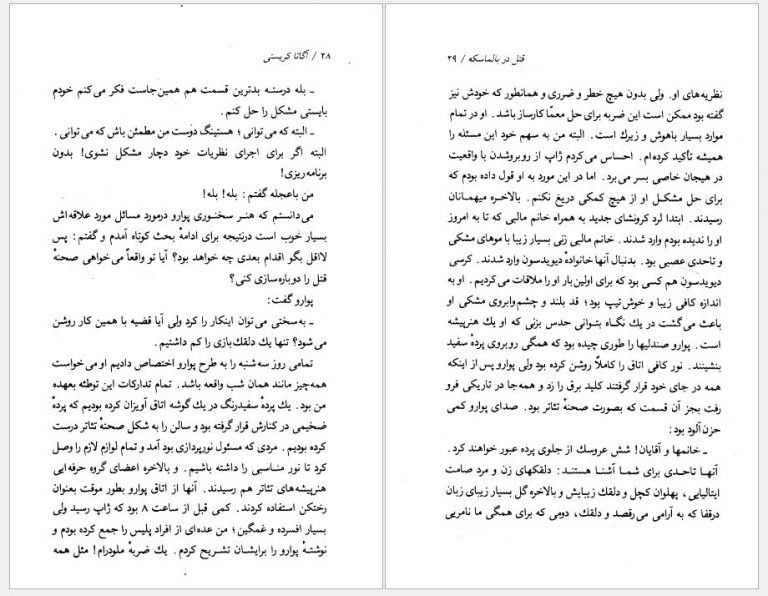 ۲۸ / آگاتا کریستی
ـ بله درسته بدترین قسمت هم همین‌جاست فکر می‌کنم خودم
بایستی مشکل را حل کنم.
ـ البته که می‌توانی؛ هستینگ دوست من مطمئن باش که می‌توانی.
البته اگر برای اجرای نظریات خود دچار مشکل نشوی! بدون
برنامه‌ریزی!
من باعجله گفتم: بله! بله!
می‌دانستم که هنر سخنوری پوارو درمورد مسائل مورد علاقه‌اش
بسیار خوب است درنتیجه برای ادامهٔ بحث کوتاه آمدم و گفتم: پس
لااقل بگو اقدام بعدی چه خواهد بود؟ آیا تو واقعاً می‌خواهی صحنهٔ
قتل را دوباره‌سازی کنی؟
پوارو گفت:
ـ به‌سختی می‌توان اینکار را کرد ولی آیا قضیه با همین کار روشن
می‌شود؟ تنها یك دلقك‌بازی را کم داشتیم.
تمامی روز سه‌شنبه را به طرح پوارو اختصاص دادیم او می‌خواست
همه‌چیز مانند همان شب واقعه باشد. تمام تدارکات این توطئه بعهده
من بود. یك پردهٔ سفیدرنگ در یك گوشه اتاق آویزان کرده بودیم که پردهٔ
ضخیمی در کنارش قرار گرفته بود و سالن را به شکل صحنهٔ تئاتر درست
کرده بودیم. مردی که مسئول نورپردازی بود آمد و تمام لوازم لازم را وصل
کرد تا نور مناسبی را داشته باشیم. و بالاخره اعضای گروه حرفه‌ایی
هنرپیشه‌های تئاتر هم رسیدند. آنها از اتاق پوارو بطور موقت بعنوان
رختکن استفاده کردند. کمی قبل از ساعت ۸ بود که ژاپ رسید ولی
بسیار افسرده و غمگین؛ من عده‌ای از افراد پلیس را جمع کرده بودم و
نوشتهٔ پوارو را برایشان تشریح کردم. یك ضربهٔ ملودرام! مثل همه
قتل در بالماسکه / ۲۹
نظریه‌های او. ولی بدون هیچ خطر و ضرری و همانطور که خودش نیز
گفته بود ممکن است این ضربه برای حل معمّا کارساز باشد. او در تمام
موارد بسیار باهوش و زیرك است. البته من به سهم خود این مسئله را
همیشه تأکید کرده‌ام. احساس می‌کردم ژاپ از روبروشدن با واقعیت
در هیجان خاصی بسر می‌برد. اما در این مورد به او قول داده بودم که
برای حل مشکل او از هیچ کمکی دریغ نکنم. بالاخره میهمانان
رسیدند. ابتدا لرد کرونشای جدید به همراه خانم مالبی که تا به امروز
او را ندیده بودم وارد شدند. خانم مالبی زنی بسیار زیبا با موهای مشکی
و تاحدی عصبی بود. بدنبال آنها خانوادهٔ دیویدسون وارد شدند. کرسی
دیویدسون هم کسی بود که برای اولین‌بار او را ملاقات می‌کردیم. او به
اندازه کافی زیبا و خوش‌تیپ بود؛ قد بلند و چشم‌وابروی مشکی او
باعث می‌گشت در یك نگاه بتوانی حدس بزنی که او یك هنرپیشه
است. پوارو صندلیها را طوری چیده بود که همگی روبروی پردهٔ سفید
بنشینند. نور کافی اتاق را کاملاً روشن کرده بود ولی پوارو پس از اینکه
همه در جای خود قرار گرفتند کلید برق را زد و همه‌جا در تاریکی فرو
رفت بجز آن قسمت که بصورت صحنهٔ تئاتر بود. صدای پوارو کمی
حزن‌آلود بود:
ـ خانمها و آقایان! شش عروسك از جلوی پرده عبور خواهند کرد.
آنها تاحدی برای شما آشنا هستند: دلقکهای زن و مرد صامت
ایتالیایی، پهلوان کچل و دلقك زیبایش و بالاخره گل بسیار زیبای زبان
درقفا که به آرامی می‌رقصد و دلقك، دومی که برای همگی ما نامریی